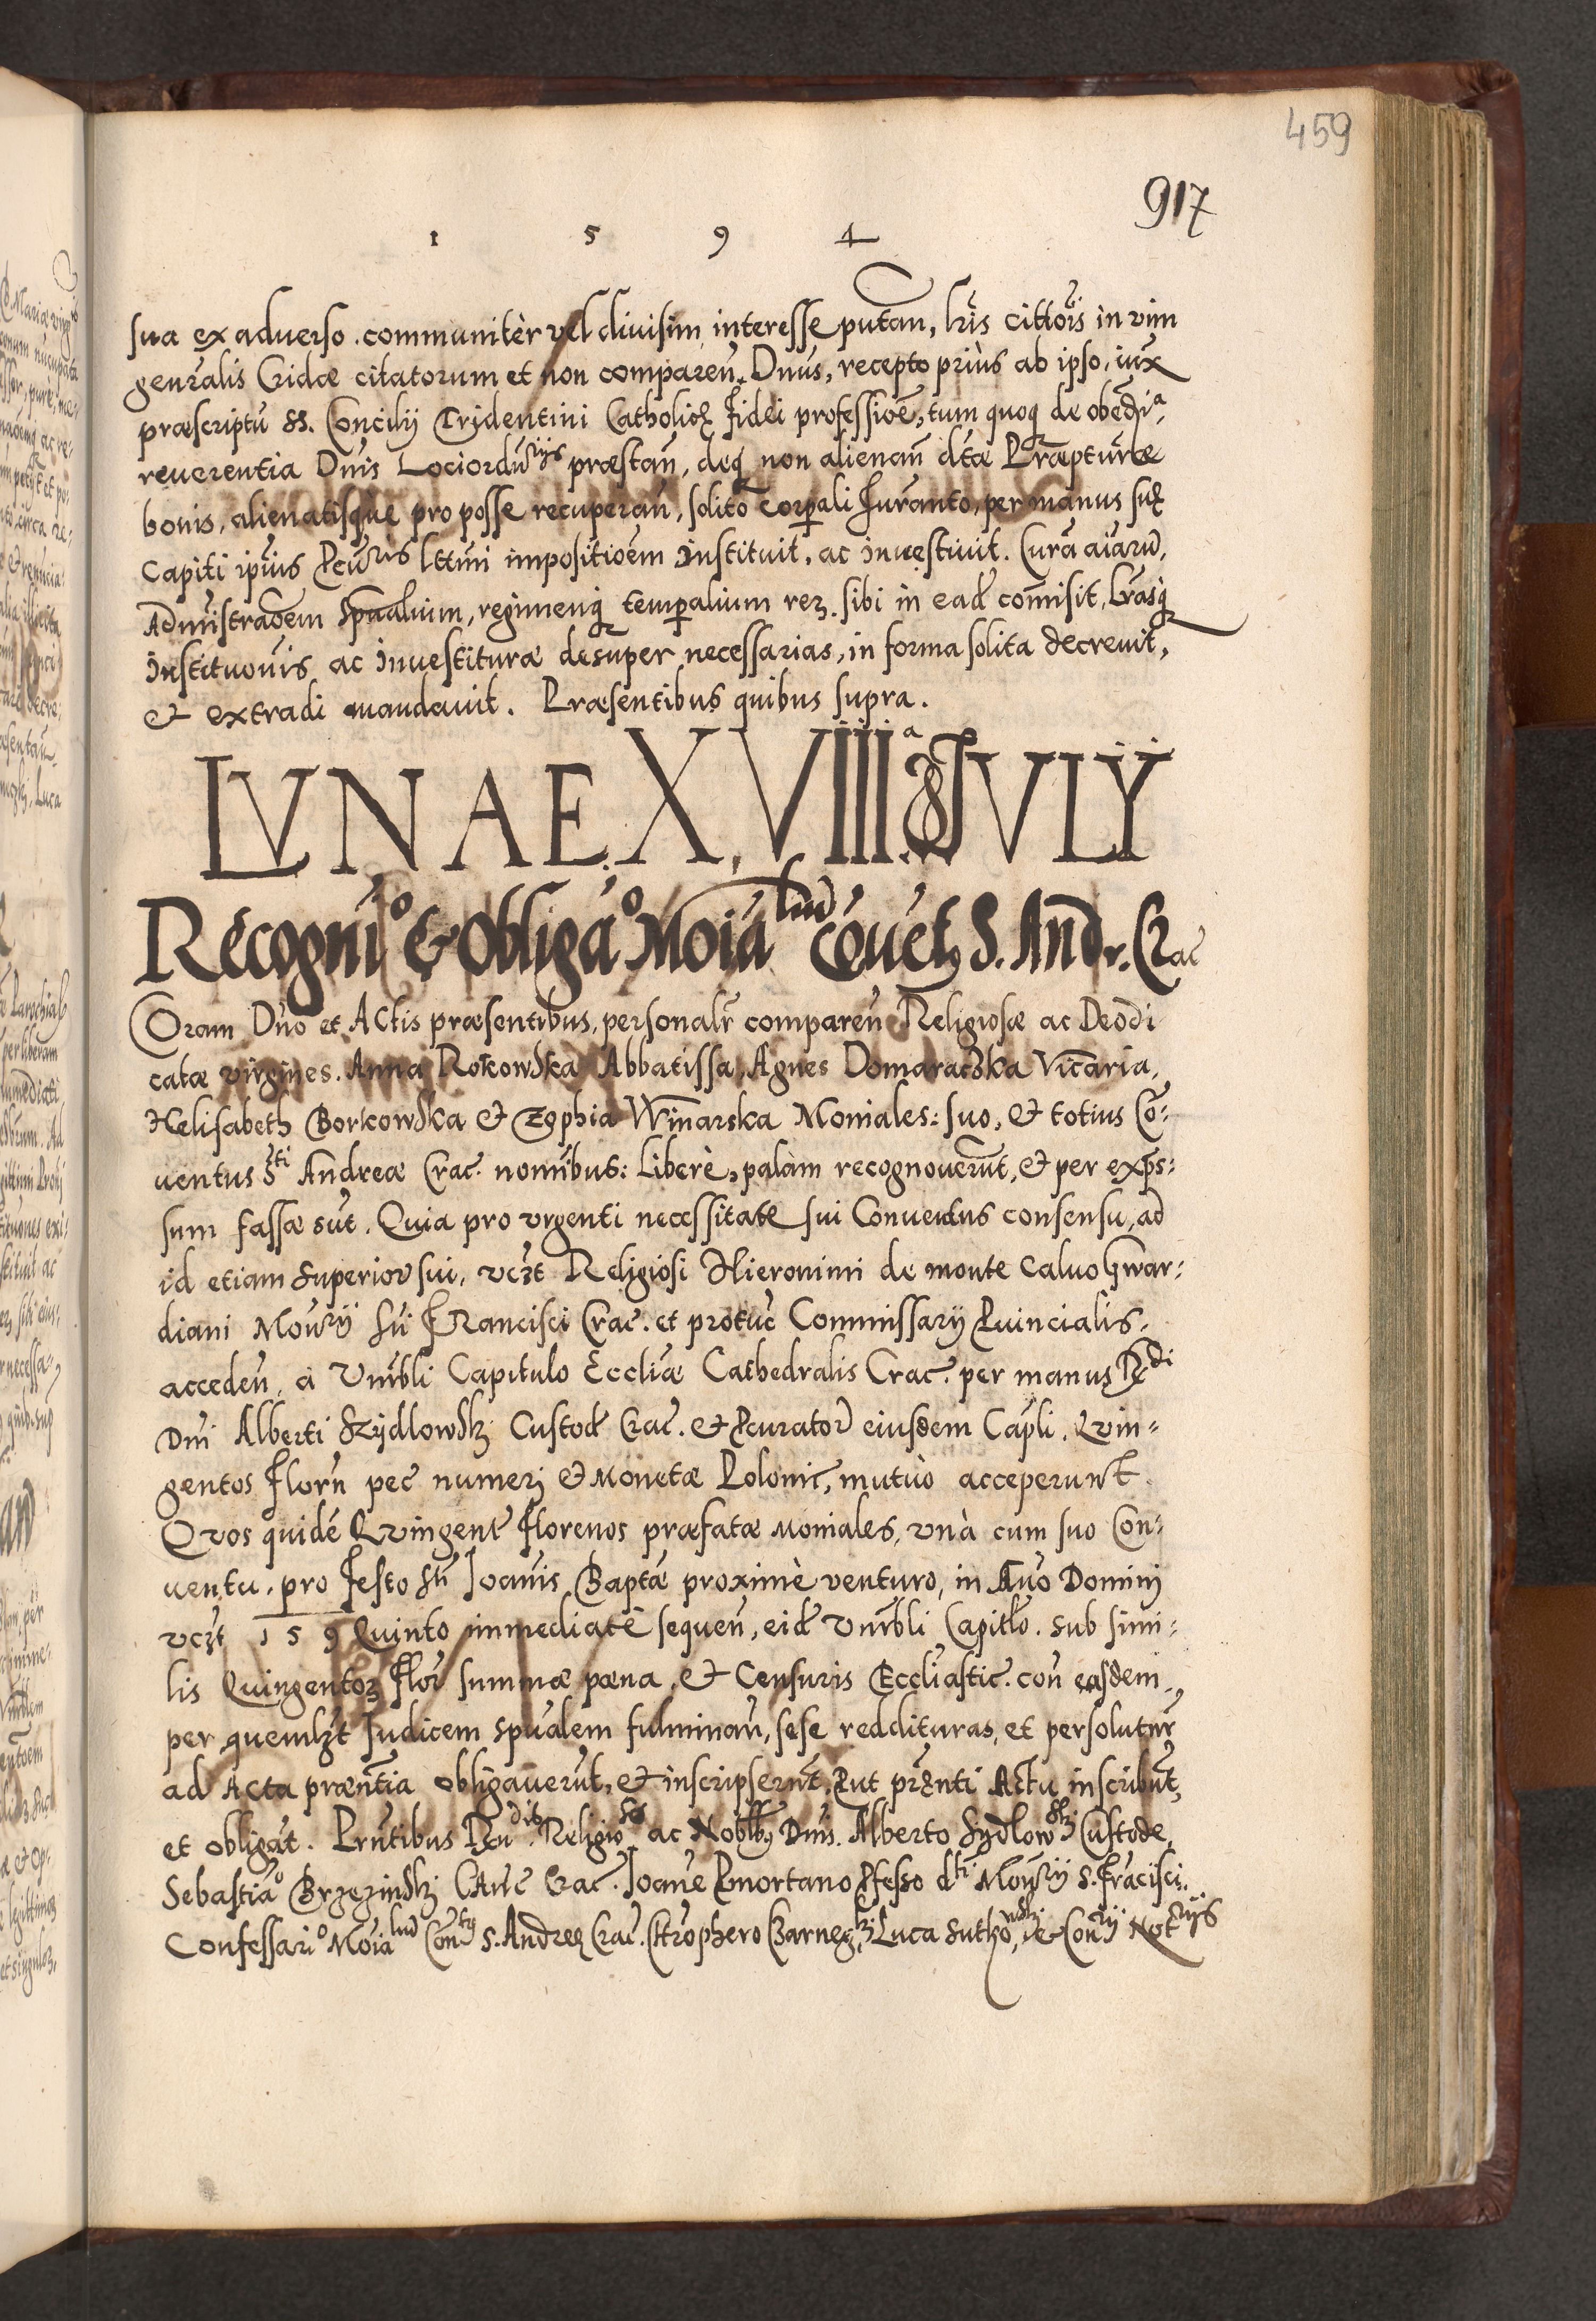 459
917
1 5 9 4
sua ex adverso communitèr vel divisim interesse putan̄, lris cittōis in vim
genr̄alis Cridæ citatorum et non comparen̄. Dnūs, recepto priùs ab ipso, iux
præscriptū SS. Concilij Tridentini Catholicę fidei professioē, tum quoq de obedīª,
reverentia Dnīs Lociordīⁿʳⁱʲˢ præstan̄, deq non alienan̄ dtæ Præpturæ
bonis, alienatisque pro posse recuperan̄, solito corp̄ali Iuranto, per manus suę
Capiti ip̄ius Pcuʳⁱˢ lttmi impositioēm instituit, ac investivit. Curā aīarū,
Administraōem Spūalium, regimenq temp̄alium rerz. sibi in ead comisit, Lr̄asq
Instituōnis ac investituræ desuper necessarias, in forma solita decrevit,
et extradi mandavit. Præsentibus quibus supra.
LVNAE. X, VIIIIª IVLIJ
Recogniº & Obligaº Moialiū cōvetꝫ S. Andr. Crac
Coram Dn̄o et Actis præsentibus, personalr̄ comparen̄ Religiosæ ac Deodi
catæ virgines. Anna Rokowska Abbatissa, Agnes Domaradska Vicaria,
Helisabeth Borkowska & Zophia Winarska Moniales: suo, & totius Cō:
ventus Sti Andreæ Crac. nomibus: Liberè, palàm recognoverūt, & per exp̄s:
sum fassæ sūt. Quia pro urgenti necessitate sui Conventus consensu, ad
id etiam Superior sui, vczt Religiosi Hieronimi de monte Calvo Gwar:
diani Monʳⁱʲ Sti Francisci Crac. et protūc Commissarij Pvincialis.
acceden̄, à Vn̄rbli Capitulo Eccliæ Cathedralis Crac. per manus Rdi
Dn̄i Alberti Szydlowskj Custod Crac. & Pcurator eiusdem Capli. Qvin=
gentos Florn̄ pec numerj & Monetæ Polonic, mutùo acceperunt.
Qvos quidē Qvingent Florenos præfatæ Moniales, unà cum suo Con:
ventu, pro Festo Sti Ioanīs Baptæ proximè venturo, in Aн̄o Dominj
vczt 1 5 9 Quinto immediatè sequen̄, eid Vn̄rbli Capitlo. sub simi:
lis Quingentorz Flor̄ summæ pœna, & Censuris Eccliastic. con easdem
per quemlzt Iudicem spūalem fulminan̄, sese reddituras, et persolutur̄
ad Acta præntia obligaverūt, & inscripserūt. Put prn̄ti Actu inscribūt,
et obligāt. Prn̄tibus Rn̄dis Religioso ac Noblbꝫ Dnīs. Alberto Sydlowskj Custode,
Sebastiaº Brzezinskj Canc̄ Crac. Ioanne Pmortano Pfesso dti Monʳⁱʲ S. Frācisci.
Confessariº Moialiū Conty S. Andreę Crac. Chrophero Czarnegkj, Luca Sutkowskj, & Conʳⁱʲ Notʳⁱʲˢ